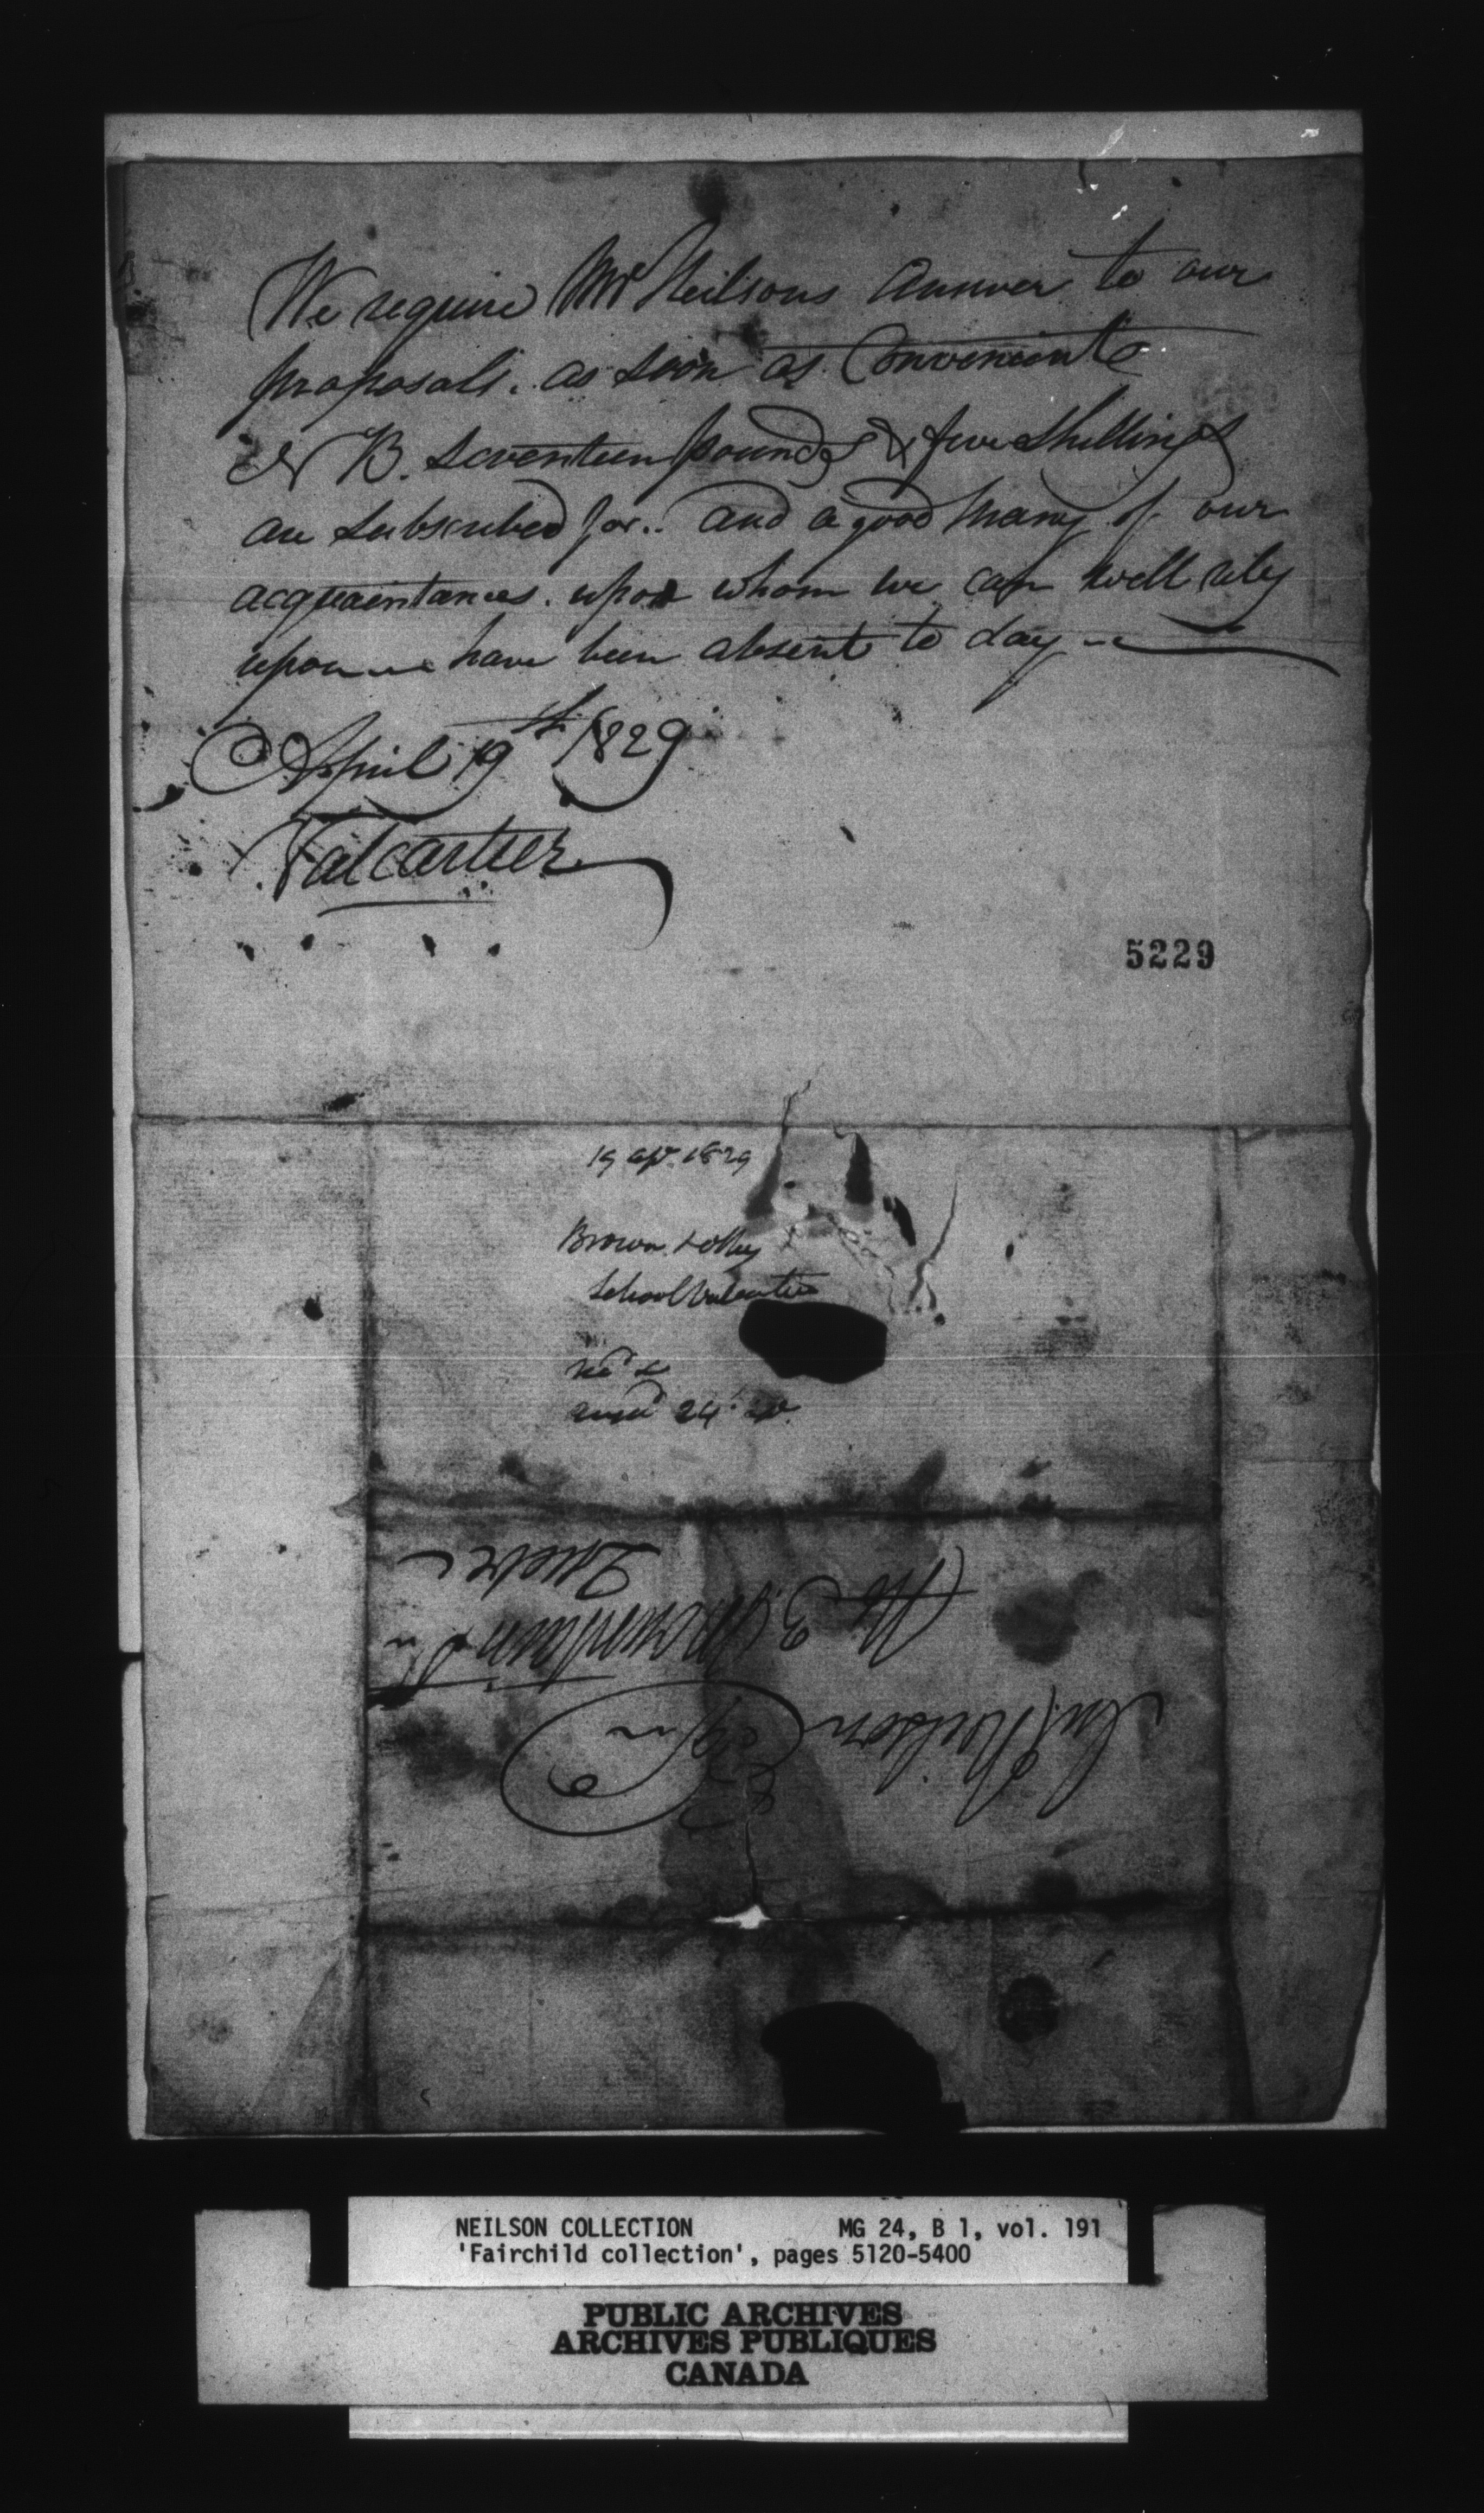 We require Mr Neilsons Answer to our
proposals. as soon as Convenient
N B. seventeen pounds & five Shillings
are subscribed for.. And a good many of our
acquaintances. upon whom we can well rely
upon have been absent to day
April 19th 1829
Valcartier
5229
19 apr. 1829
Brown & others
School Valcartier
recd &
answd 24 ap.
Neilson Esqr
No 3 Mountain St
Quebec
NEILSON COLLECTION MG 24, B 1, vol. 191
'Fairchild collection', pages 5120-5400
PUBLIC ARCHIVES
ARCHIVES PUBLIQUES
CANADA